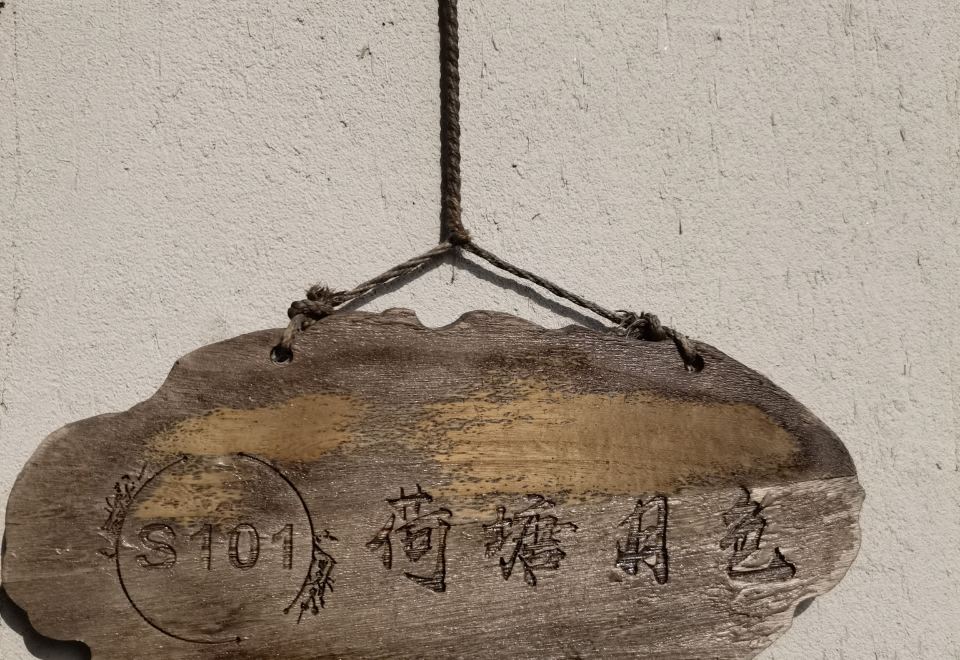 S101 荷塘月色